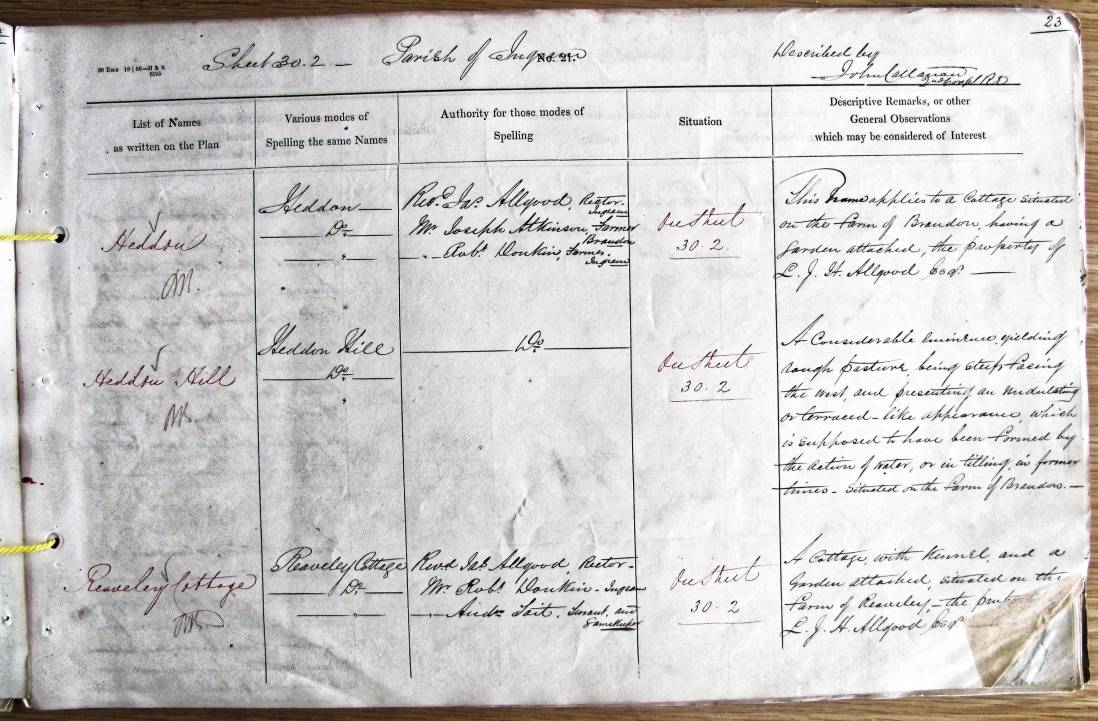 23
Sheet 30.2 — Parish of Ingram
No. 21.
Described by
John Callanan
2nd Corpl R.E
List of Names
as written on the Plan
Various modes of
Spelling the same Names
Authority for those modes of
Spelling
Situation
Descriptive Remarks, or other
General Observations
which may be considered of Interest
Heddon
Heddon
Do
"
Revd. Jas. Allgood, Rector. Ingram
Mr. Joseph Atkinson, Farmer Brandon
" Robt. Donkin, Farmer. Ingram
On Sheet
30.2.
This Name applies to a Cottage situated
on the Farm of Brandon, having a
Garden attached, the property of
L. J. H. Allgood Esqr. —
Heddon Hill
Heddon Hill
Do
"
Do
On Sheet
30.2
A Considerable eminence yielding
rough pasture, being steep facing
the west, and presenting an undulating
or terraced-like appearance, which
is supposed to have been formed by
the action of water, or in tilling, in former
times. Situated on the Farm of Brandon. —
Reaveley Cottage
Reaveley Cottage
Do
"
Revd Jas Allgood, Rector —
Mr Robt. Donkin — Ingram
" Andw Tait, Tenant, and Gamekeeper
On Sheet
30.2
A Cottage, with Kennel, and a
Garden attached, situated on the
Farm of Reaveley, — the
L. J. H. Allgood Esqr